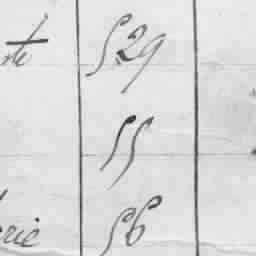 te 529
55
rie 56